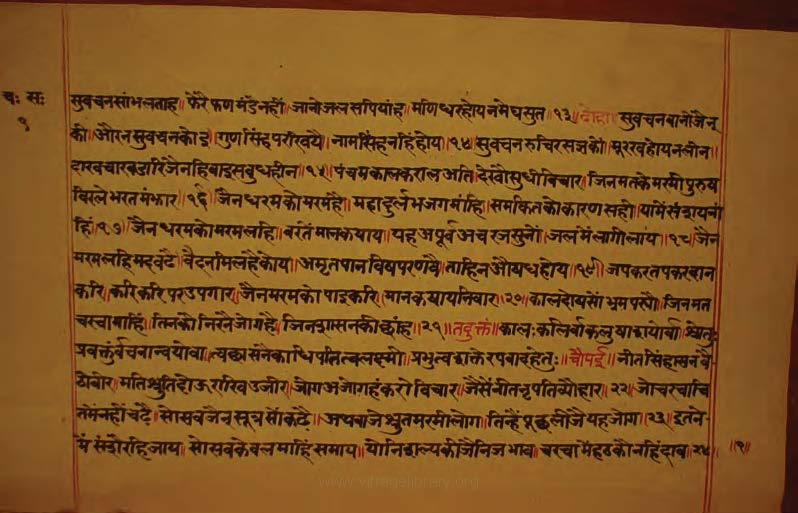 चः सः
१
सुवचनसांभलताह॥ फेरै फण मंडै नहीं॥ जानो जल सपियांह॥ मणिधरहोय नमेघसुत॥ १३॥ दोहा॥ सुवचन बानी जैन
की॥ औरन सुवचन कोइ॥ गुण सिंह परखियै॥ नाम सिंह नहिं होय॥ १४॥ सुवचन रुचिर सजन कौं॥ मूरख होय न लीन॥
दाख चार जैन हि बुधहीन॥ १५॥ पंचमकाल कराल अति॥ देखौ सुधी विचार॥ जिनमत के मरमी पुरुष
विरले भरत मंझार॥ १६॥ जैन धरम को मरम है॥ महा दुर्लभ जग मांहि॥ समकित को कारण सही॥ यामें संशय नां
हिं॥ १७॥ जैन धरम को मरम लहि॥ वरतै मान कषाय॥ यह अपूर्व अचरज सुनौ॥ जल में लागी लाय॥ १८॥ जैन
मरम लहि मद बढै॥ वैद न मिलहै कोय॥ अमृतपान विष परणवै॥ ताहि न औषध होय॥ १९॥ जप कर तप कर दान
करि॥ करि करि पर उपगार॥ जैन मरम को पाइ करि॥ मान कषाय निवार॥ २०॥ काल दोष सों भ्रम पर्यो॥ जिनमत
चरचा मांहिं॥ तिनको निरनै जोग है॥ जिनशासन की छांह॥ २१॥ तदुक्तं॥ कालः कलिर्वा कलुषाशयो वा॥ श्रोतुः
प्रवक्तुर्वचनानयो वा॥ त्वच्छासनैकाधिपतित्वलक्ष्मी॥ प्रभुत्वशक्तेरपवादहेतुः॥ चौपई॥ नीत सिंहासन बै
ठो वीर॥ मति श्रुति दोऊ राखि उजीर॥ जोग अजोगहं करो विचार॥ जैसें नीत नृपति व्यौहार॥ २२॥ जो चरचा चि
त में नहीं चढै॥ सो सब जैन सूत्र सों कढै॥ अथवा जे श्रुत मरमी लोग॥ तिन्हें पूछ लीजै यह जोग॥ २३॥ इतने
में संशै रहि जाय॥ सो सब केवल मांहिं समाय॥ यों निशल्य कीजै निज भाव॥ चरचा में हठ कौ नहिं दाव॥ २४॥
॥१॥
www.vitragelibrary.org